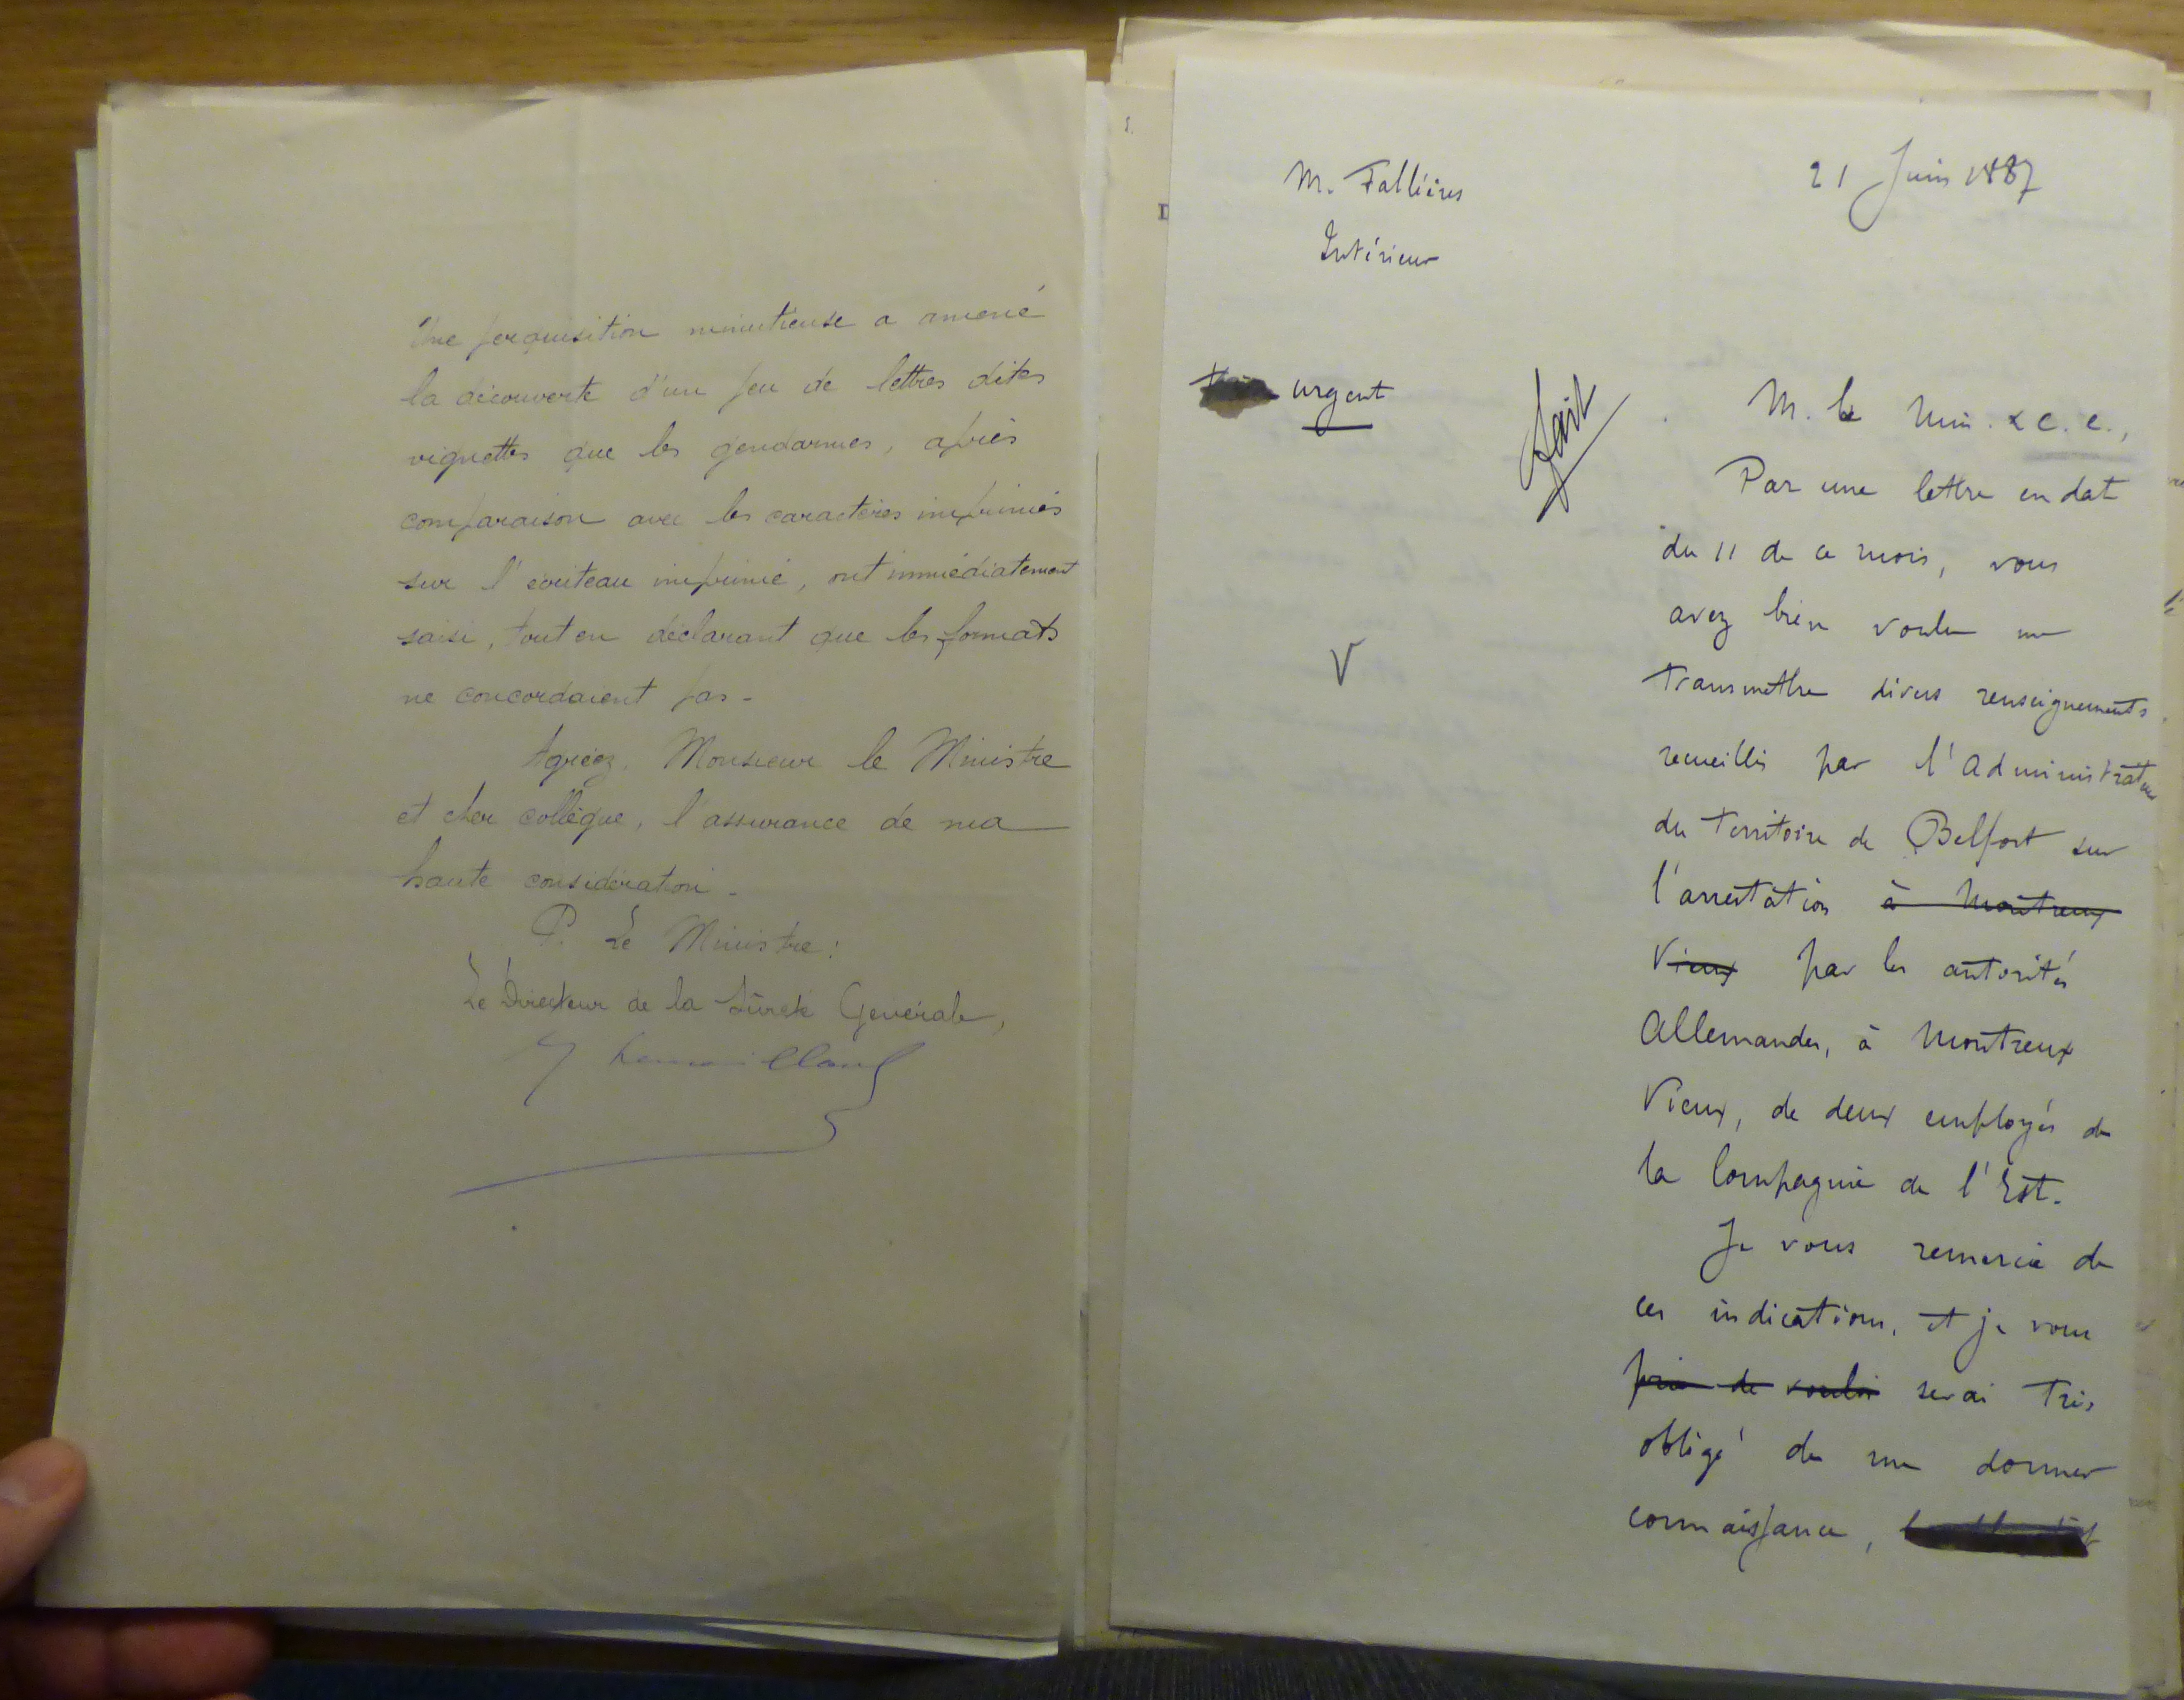 Une perquisition minutieuse a amené
la découverte d'un jeu de lettres dites
vignettes que les gendarmes, après
comparaison avec les caractères imprimés
sur l'écriteau imprimé, ont immédiatement
saisi, tout en déclarant que les formats
ne concordaient pas -
Agréez, Monsieur le Ministre
et cher collègue, l'assurance de ma
haute considération -
P. Le Ministre :
Le Directeur de la Sûreté Générale,
M. Fallières
21 Juin 1887
Intérieur
urgent
fait
M. le Min. & C. C.,
Par une lettre en dat
du 11 de ce mois, vous
avez bien voulu me
transmettre divers renseignements
recueillis par l'Administrateur
du Territoire de Belfort sur
l'arrestation à Montreux
Vieux par les autorités
Allemandes, à Montreux
Vieux, de deux employés de
la Compagnie de l'Est.
Je vous remercie de
ces indications, et je vous
prie de vouloir serai très
obligé de me donner
connaissance,